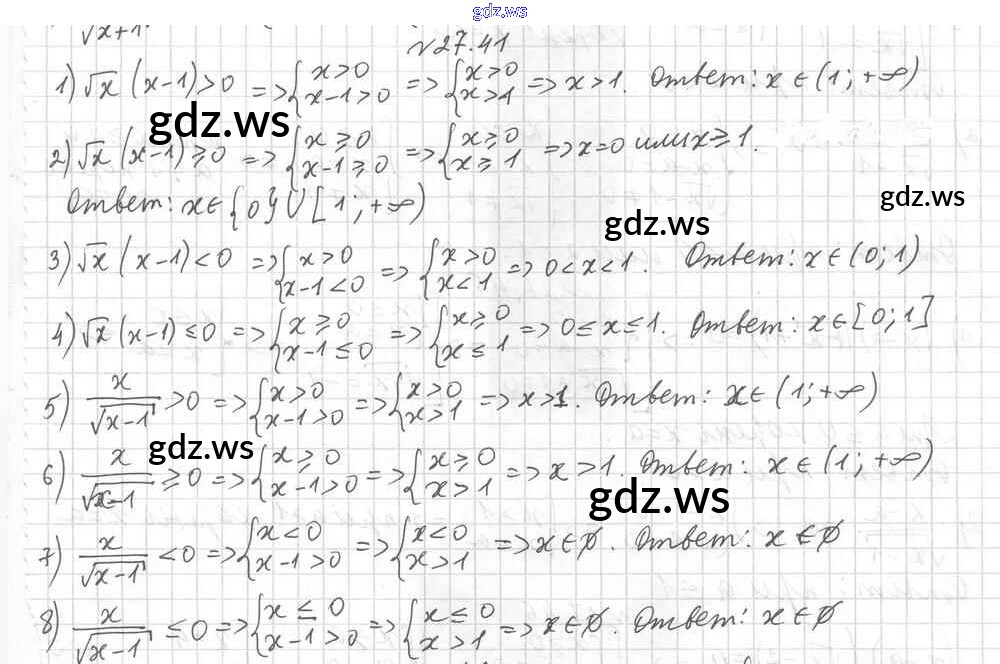 gdz.ws
√x+1
№27.41
1) √x (x-1)>0 => {x>0 x-1>0 => {x>0 x>1 => x>1. Ответ: x∈(1;+∞)
gdz.ws
2) √x (x-1)≥0 => {x≥0 x-1≥0 => {x≥0 x≥1 => x=0 или x≥1.
Ответ: x∈{0}∪[1;+∞)
gdz.ws
gdz.ws
3) √x (x-1)<0 => {x>0 x-1<0 => {x>0 x<1 => 0<x<1. Ответ: x∈(0;1)
4) √x (x-1)≤0 => {x≥0 x-1≤0 => {x≥0 x≤1 => 0≤x≤1. Ответ: x∈[0;1]
5) x/√x-1 >0 => {x>0 x-1>0 => {x>0 x>1 => x>1. Ответ: x∈(1;+∞)
gdz.ws
6) x/√x-1 ≥0 => {x≥0 x-1>0 => {x≥0 x>1 => x>1. Ответ: x∈(1;+∞)
gdz.ws
7) x/√x-1 <0 => {x<0 x-1>0 => {x<0 x>1 => x∈∅. Ответ: x∈∅
8) x/√x-1 ≤0 => {x≤0 x-1>0 => {x≤0 x>1 => x∈∅. Ответ: x∈∅